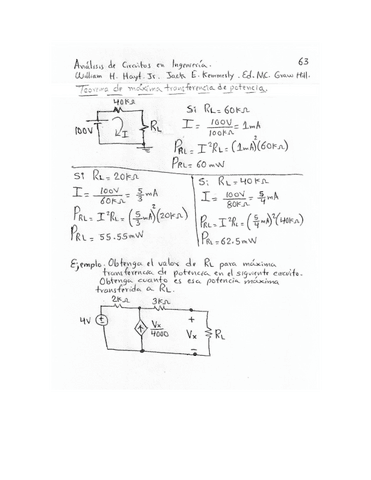 Análisis de Circuitos en Ingeniería. 63
William H. Hayt. Jr. Jack E. Kemmerly. Ed. MC. Graw Hill.
Teorema de máxima transferencia de potencia.
40KΩ
100V
I
RL
Si RL = 60KΩ
I = 100V/100KΩ = 1mA
PRL = I²RL = (1mA)²(60KΩ)
PRL = 60mW
Si RL = 20KΩ
I = 100V/60KΩ = 5/3 mA
PRL = I²RL = (5/3 mA)²(20KΩ)
PRL = 55.55mW
Si RL = 40KΩ
I = 100V/80KΩ = 5/4 mA
PRL = I²RL = (5/4 mA)²(40KΩ)
PRL = 62.5mW
Ejemplo. Obtenga el valor de RL para máxima
transferencia de potencia en el siguiente circuito.
Obtenga cuanto es esa potencia máxima
transferida a RL.
2KΩ 3KΩ
4V
Vx/4000
+
Vx
-
RL